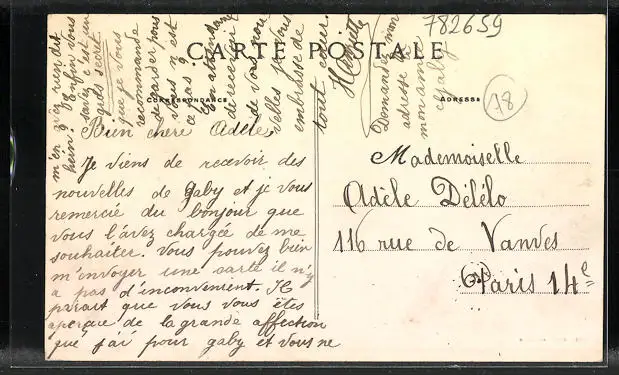 782659
CARTE POSTALE
CORRESPONDANCE
ADRESSE
78
Bien chère Adèle,
Je viens de recevoir des
nouvelles de Gaby et je vous
remercie du bonjour que
vous l'avez chargée de me
souhaiter. Vous pouvez bien
m'envoyer une carte il n'y
a pas d'inconvenient. Il
parait que vous vous êtes
aperçue de la grande affection
que j'ai pour gaby et vous ne
m'en aviez rien dit
hein? Enfin vous
savez c'est un
petit secret
que je vous
recommande
de garder pour
vous n'est
ce pas?
En attendant
de recevoir
de vos nou
velles je vous
embrasse de
tout cœur.
Henriette
Demandez mon
adresse à
mon amie
Gaby
Mademoiselle
Adèle Délélo
116 rue de Vanves
Paris 14e